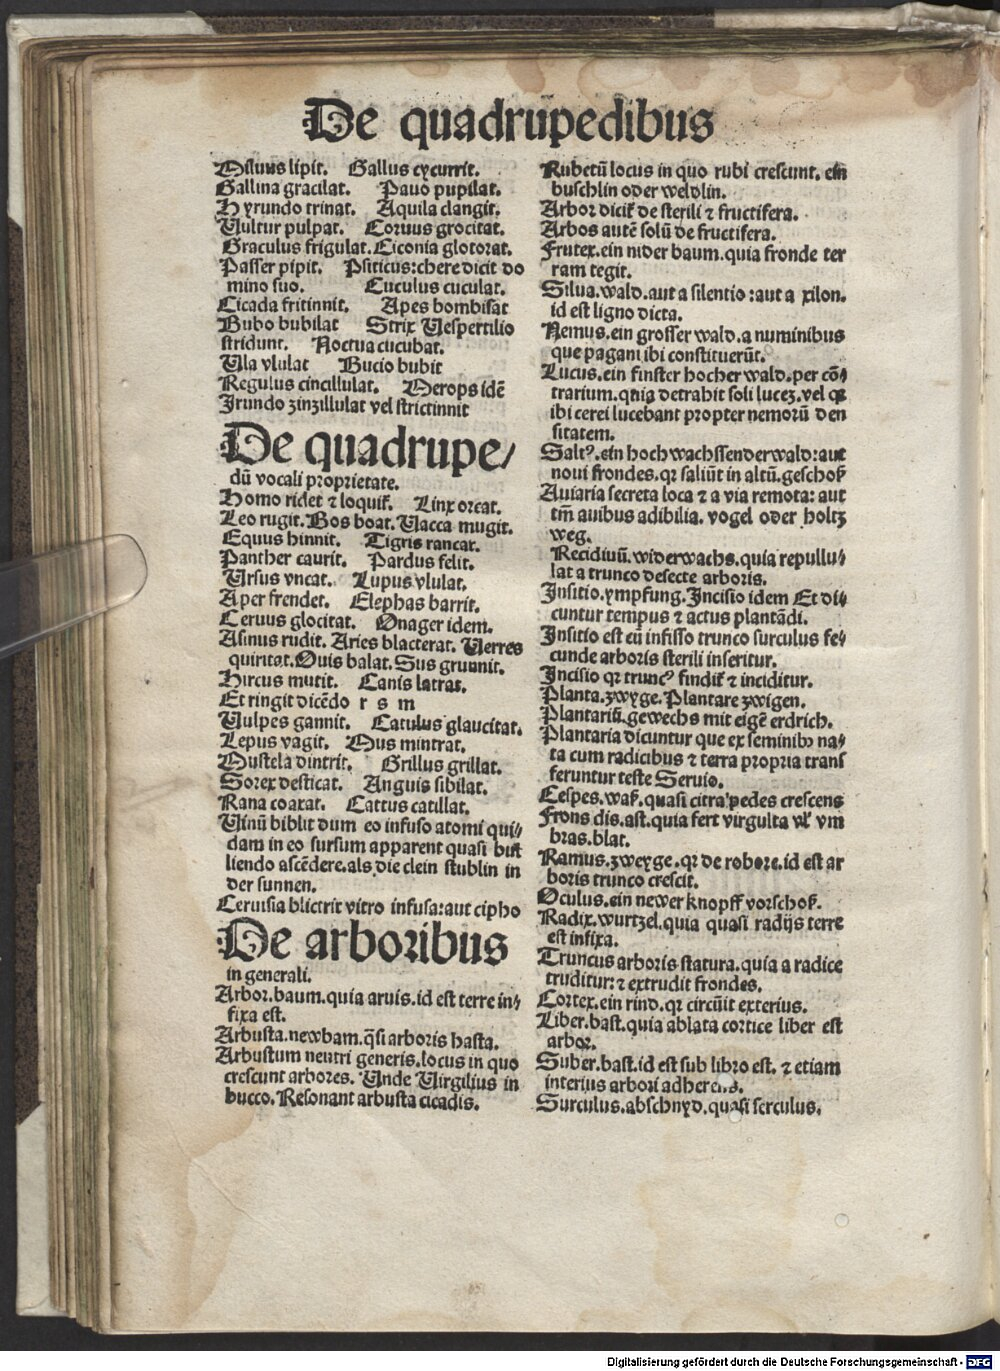 De quadrupedibus
Miluus lipit. Gallus cycurrit.
Gallina gracilat. Pavo pupilat.
Hyrundo trinat. Aquila clangit.
Uultur pulpat. Coruus grocitat.
Graculus frigulat. Ciconia glotorat.
Passer pipit. Psiticus: chere dicit do
mino suo. Cuculus cuculat.
Cicada fritinnit. Apes bombisat
Bubo bubilat Strix Uespertilio
stridunt. Noctua cucubat.
Ula vlulat Bucio bubit
Regulus cincillulat. Merops idē
Irundo zinzillulat vel strictinnit
De quadrupe/
dū vocali proprietate.
Homo ridet ⁊ loquit᷑. Linx orcat.
Leo rugit. Bos boat. Uacca mugit.
Equus hinnit. Tigris rancat.
Panther caurit. Pardus felit.
Ursus vncat. Lupus vlulat.
Aper frendet. Elephas barrit.
Ceruus glocitat. Onager idem.
Asinus rudit. Aries blacterat. Uerres
quiritat. Ouis balat. Sus grunnit.
Hircus mutit. Canis latrat.
Et ringit dicēdo r s m
Uulpes gannit. Catulus glaucitat.
Lepus vagit. Mus mintrat.
Mustela dintrit. Grillus grillat.
Sorex desticat. Anguis sibilat.
Rana coaxat. Cattus catillat.
Uinū biblit dum eo infuso atomi qui/
dam in eo sursum apparent quasi bul
liendo ascēdere. als die clein stublin in
der sunnen.
Ceruisia blictrit vitro infusa: aut cipho
De arboribus
in generali.
Arbor. baum. quia aruis. id est terre in/
fixa est.
Arbusta. newbam. q̄si arboris hasta.
Arbustum neutri generis. locus in quo
crescunt arbores. Unde Uirgilius in
bucco. Resonant arbusta cicadis.
Rubetū locus in quo rubi crescunt. ein
buschlin oder weldlin.
Arbor dicit᷑ de sterili ⁊ fructifera.
Arbos autē solū de fructifera.
Frutex. ein nider baum. quia fronde ter
ram tegit.
Silua. wald. aut a silentio: aut a xilon.
id est ligno dicta.
Nemus. ein grosser wald. a numinibus
que pagani ibi constituerūt.
Lucus. ein finster hocher wald. per cō/
trarium. quia detrahit soli lucez. vel ꝙ
ibi cerei lucebant propter nemorū den
sitatem.
Saltꝰ. ein hoch wachssender wald: aut
noui frondes. qr saliūt in altū. geschoß
Auiaria secreta loca ⁊ a via remota: aut
tm̄ auibus adibilia. vogel oder holtz
weg.
Recidiuū. widerwachs. quia repullu/
lat a trunco desecte arboris.
Insitio. ympfung. Incisio idem Et di/
cuntur tempus ⁊ actus plantādi.
Insitio est cū infisso trunco surculus fe/
cunde arboris sterili inseritur.
Incisio qr truncꝰ findit᷑ ⁊ inciditur.
Planta. zwyge. Plantare zwigen.
Plantariū. gewechs mit eigē erdrich.
Plantaria dicuntur que ex seminibꝰ na/
ta cum radicibus ⁊ terra propria trans
feruntur teste Seruio.
Cespes. waß. quasi circa pedes crescens
Frons dis. ast. quia fert virgulta vl' vm
bras. blat.
Ramus. zweyge. qr de robore. id est ar
boris trunco crescit.
Oculus. ein newer knopff vorschoß.
Radix. wurtzel. quia quasi radijs terre
est infixa.
Truncus arboris statura. quia a radice
truditur: ⁊ extrudit frondes.
Cortex. ein rind. qr circūit exterius.
Liber. bast. quia ablata cortice liber est
arbor.
Suber. bast. id est sub libro est. ⁊ etiam
interius arbori adherens.
Surculus. abschnyd. quasi serculus.
Digitalisierung gefördert durch die Deutsche Forschungsgemeinschaft - DFG